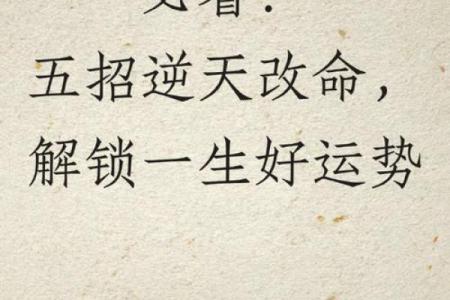 看：
五招逆天改命，
解锁一生好运势